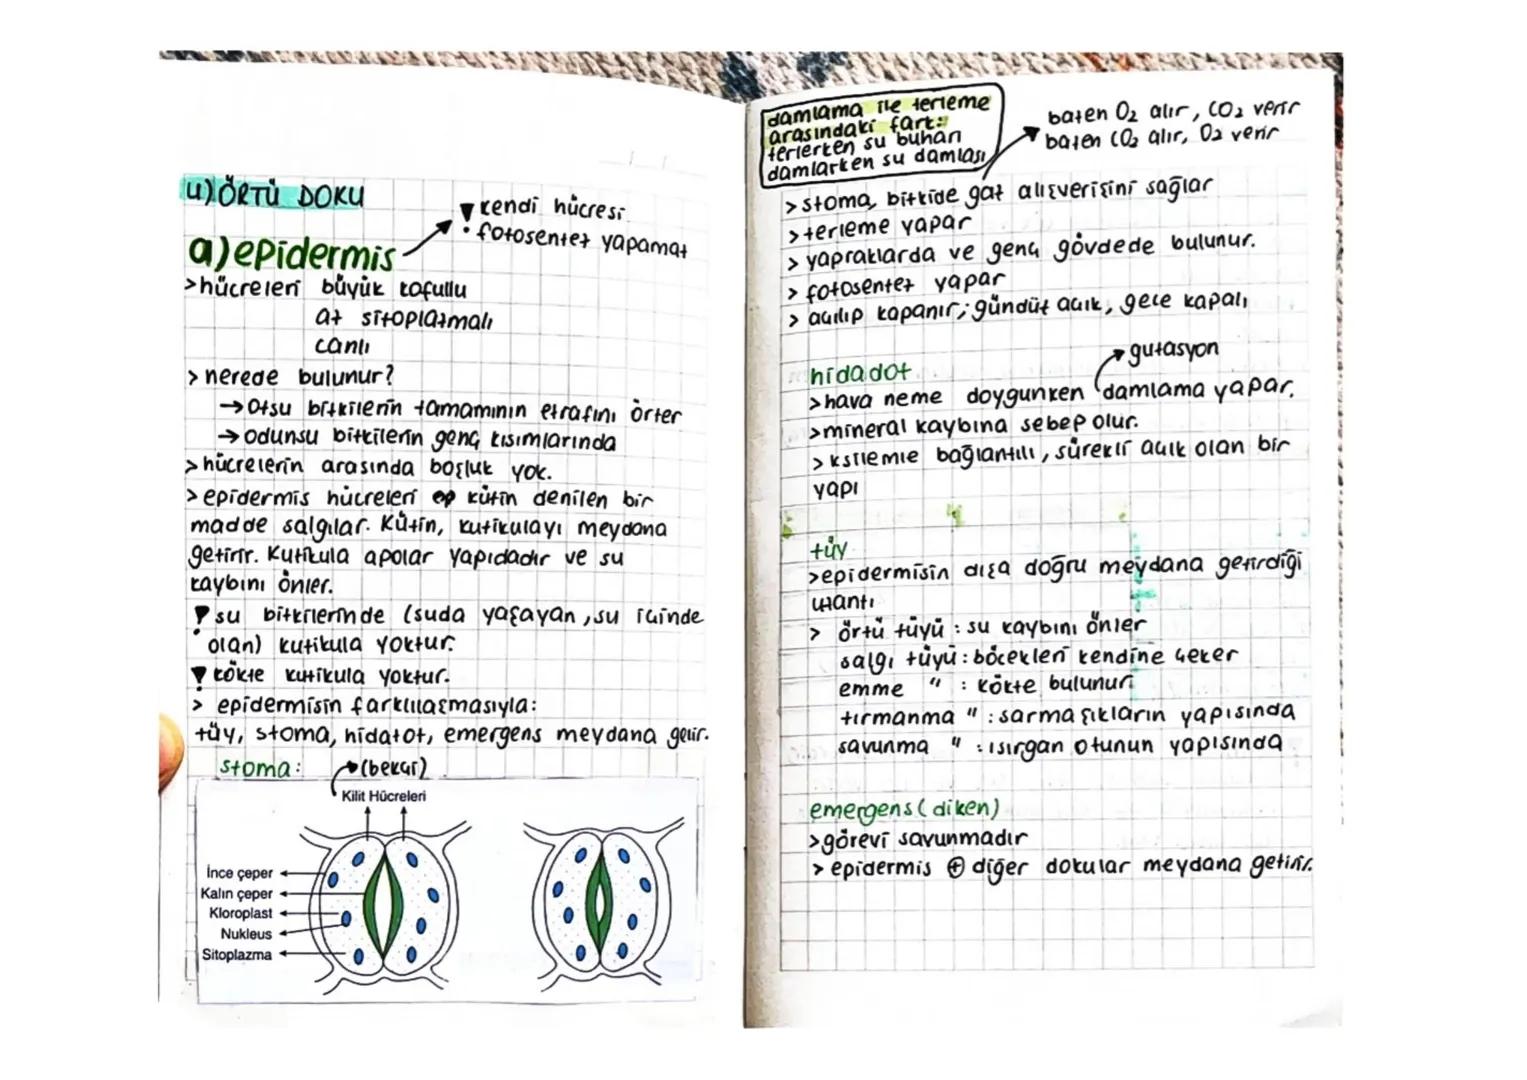 4) ÖRTÜ DOKU
a) epidermis
! kendi hücresi
fotosentez yapamaz
> hücreleri büyük kofullu
az sitoplazmalı
canlı
> nerede bulunur?
→ Otsu bitkilerin tamamının etrafını örter
→ odunsu bitkilerin genç kısımlarında
> hücrelerin arasında boşluk yok.
> epidermis hücreleri kütin denilen bir
madde salgılar. Kütin, kutikulayı meydana
getirir. Kutikula apolar yapıdadır ve su
kaybını önler.
! su bitkilerinde (suda yaşayan, su içinde
olan) kutikula yoktur.
! kökte kutikula yoktur.
> epidermisin farklılaşmasıyla:
tüy, stoma, hidatot, emergens meydana gelir.
stoma: (bekçi)
Kilit Hücreleri
İnce çeper
Kalın çeper
Kloroplast
Nukleus
Sitoplazma
damlama ile terleme
arasındaki fark:
terlerken su buharı
damlarken su damlası
bazen O₂ alır, CO₂ verir
bazen CO₂ alır, O₂ verir
> stoma, bitkide gaz alışverişini sağlar
> terleme yapar
> yapraklarda ve genç gövdede bulunur.
> fotosentez yapar
> açılıp kapanır; gündüz açık, gece kapalı
hidadot
gutasyon
> hava neme doygunken damlama yapar.
> mineral kaybına sebep olur.
> ksilemle bağlantılı, sürekli açık olan bir
yapı
tüy
> epidermisin dışa doğru meydana getirdiği
çıkantı
> örtü tüyü : su kaybını önler
salgı tüyü : böcekleri kendine çeker
emme " : kökte bulunur.
tırmanma " : sarmaşıkların yapısında
savunma " : ısırgan otunun yapısında
emergens (diken)
> görevi savunmadır
> epidermis ⊕ diğer dokular meydana getirir.